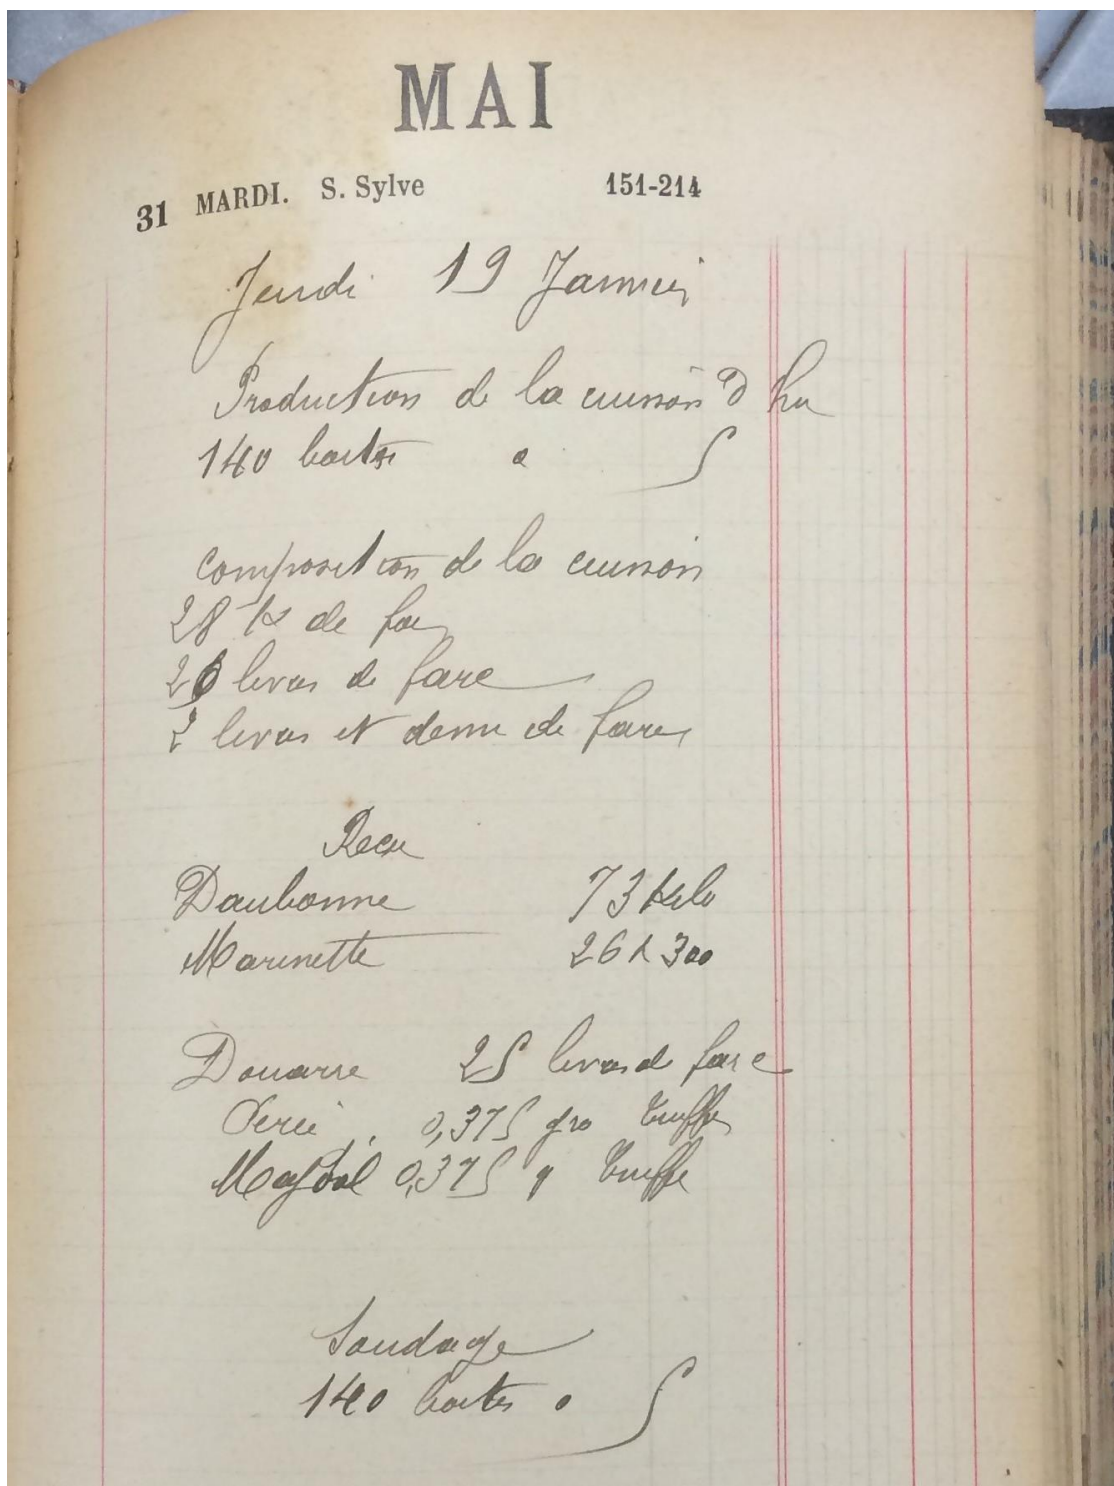 MAI
31 MARDI. S. Sylve 151-214
Jeudi 19 Janvier
Production de la cuisson D
140 boites a
composition de la cuisson
28 K de foie
26 livres de farce
2 livres et demi de farce
Recu
Daubonne 73 Kilo
Marinette 26 K 300
Douarre 25 livres de farce
0,375 gra truffe
0,375 g truffe
Soudage
140 boites